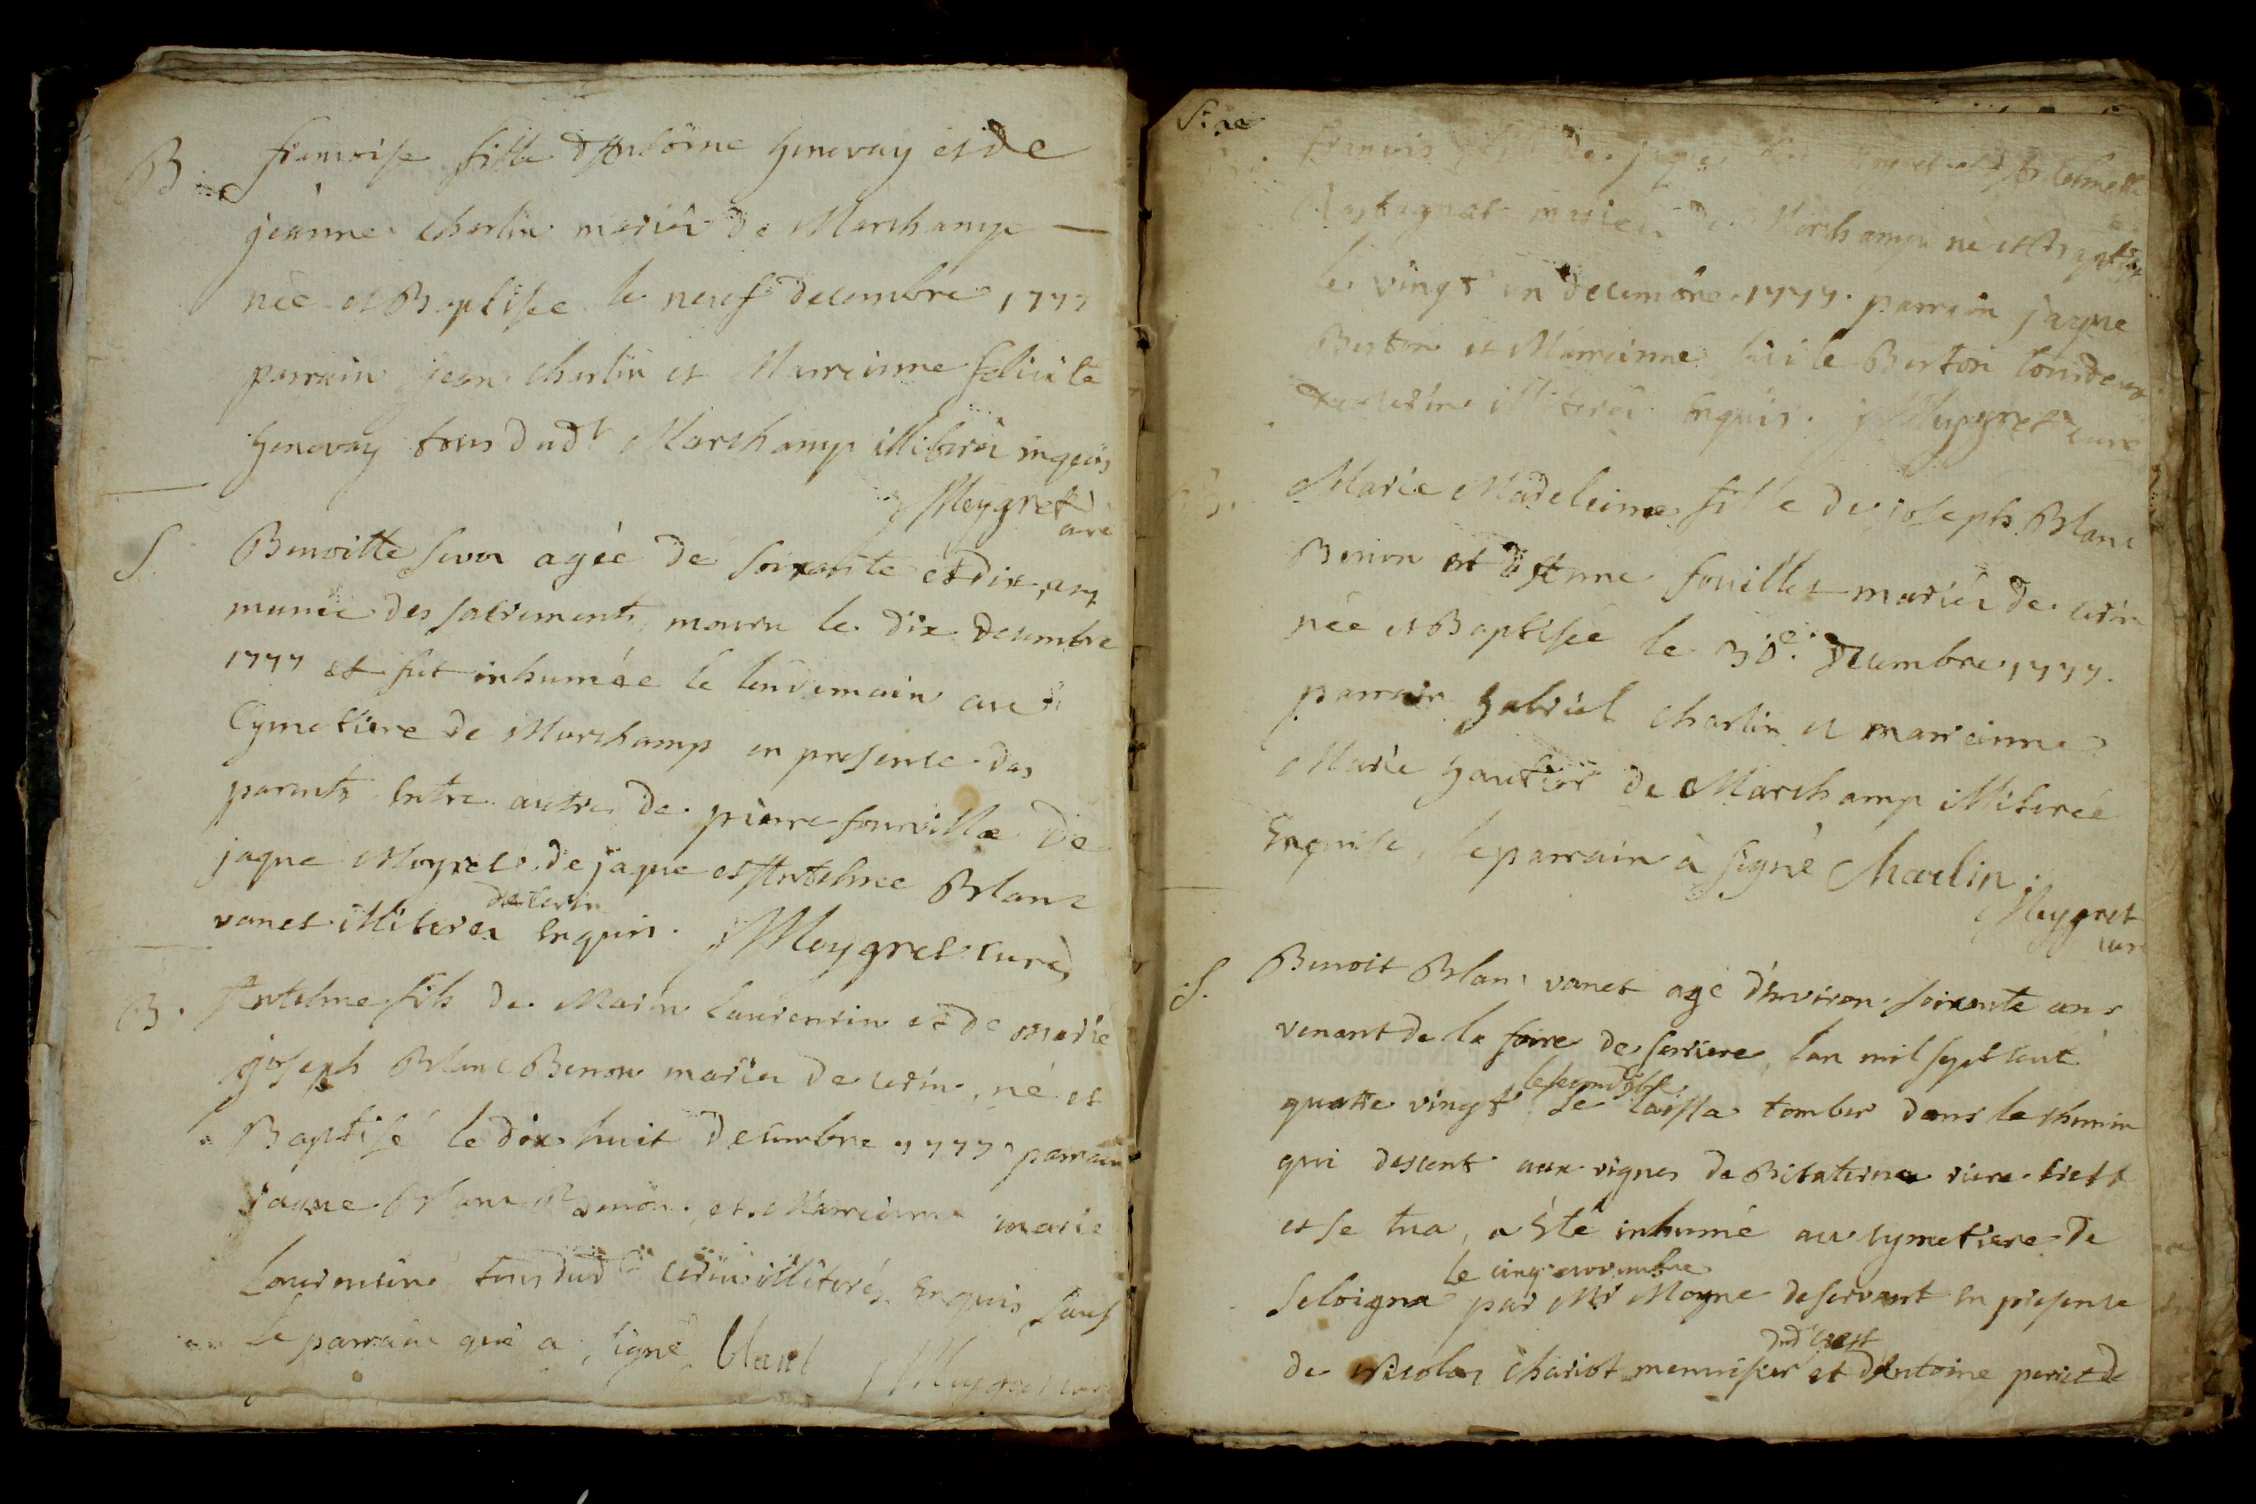 B françoise fille d'Antoine Genevay et de
jeanne charlin mariés de Marchamp
née et Baptisée le neuf decembre 1777
parrain jean charlin et Marrainne felicité
Genevay tous dudt Marchamp illiterés inquis
J Meygret curé
S. Benoitte agée de soixante et dix ans
munie des sacrements mouru le dix decembre
1777 et fut inhumée le lendemain au
Cymetiere de Marchamp en presence des
parents entre autre de pierre fouville de
jaque Meygret de jaque et Antelme Blanc
de cerin
vanet illiterés Enquis. J Meygret curé
B. Antelme fils de Marin Laurencin et de marie
joseph Blanc Benon mariés de cerin, né et
Baptisé le dix huit decembre 1777 parrain
jaque Blanc Benon, et Marrainne marie
Laurencin tous dud cerin illiterés Enquis, sauf
le parrain qui a signé blanc J Meygret curé
françois fils de jaque et d'Antelmette
mariés de Marchamp né et Baptisé
le vingt un decembre 1777. parrain jaque
Berton et Marrainne Berton tous deux
illiterés Enquis. J Meygret curé
B. Marie Madeleine fille de joseph Blanc
Benon et d'Anne fouillet mariés de cerin
née et Baptisée le 30e. decembre 1777.
parrain gabriel charlin et marrainne
Marie gautier de Marchamp illiterée
Enquise, le parrain à signé Charlin.
J Meygret
curé
S. Benoit Blanc vanet agé d'Environ soixante ans
venant de la foire de serriere, l'an mil sept cent
le second 9bre
quatre vingt se laissa tomber dans le chemin
qui descent aux vignes de riere
et se tua, a Eté inhumé au cymetiere de
le cinq novembre
Seloigna par Mr Moyne deservant en presence
dud
de Nicolas chariot menuisier et d'Antoine perret de